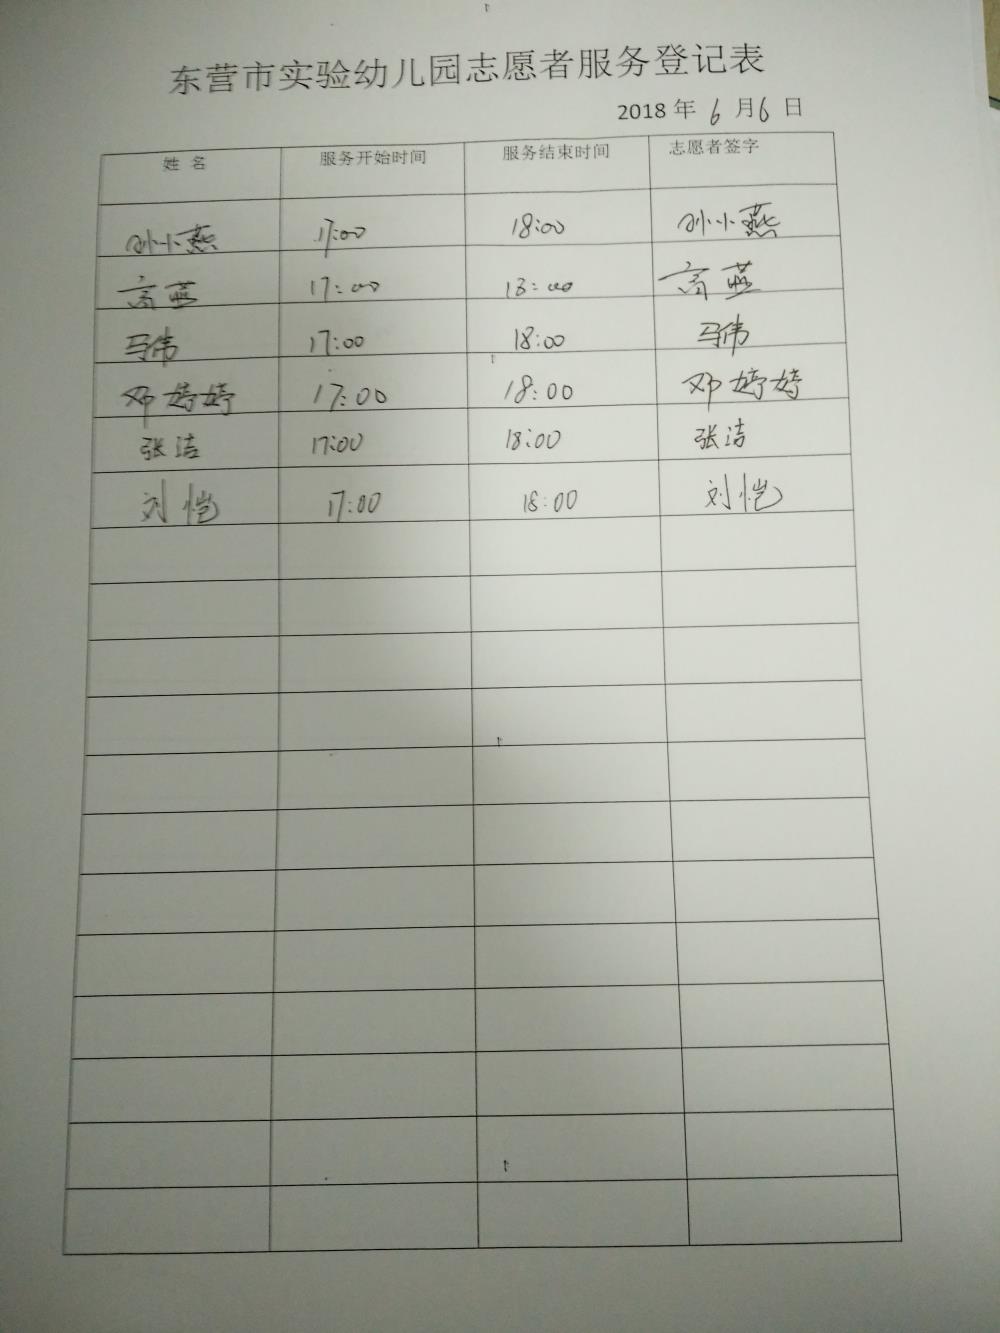 东营市实验幼儿园志愿者服务登记表
2018 年 6 月 6 日
姓 名 服务开始时间 服务结束时间 志愿者签字
孙小燕 17:00 18:00 孙小燕
高燕 17:00 18:00 高燕
马伟 17:00 18:00 马伟
邓婷婷 17:00 18:00 邓婷婷
张洁 17:00 18:00 张洁
刘恺 17:00 18:00 刘恺